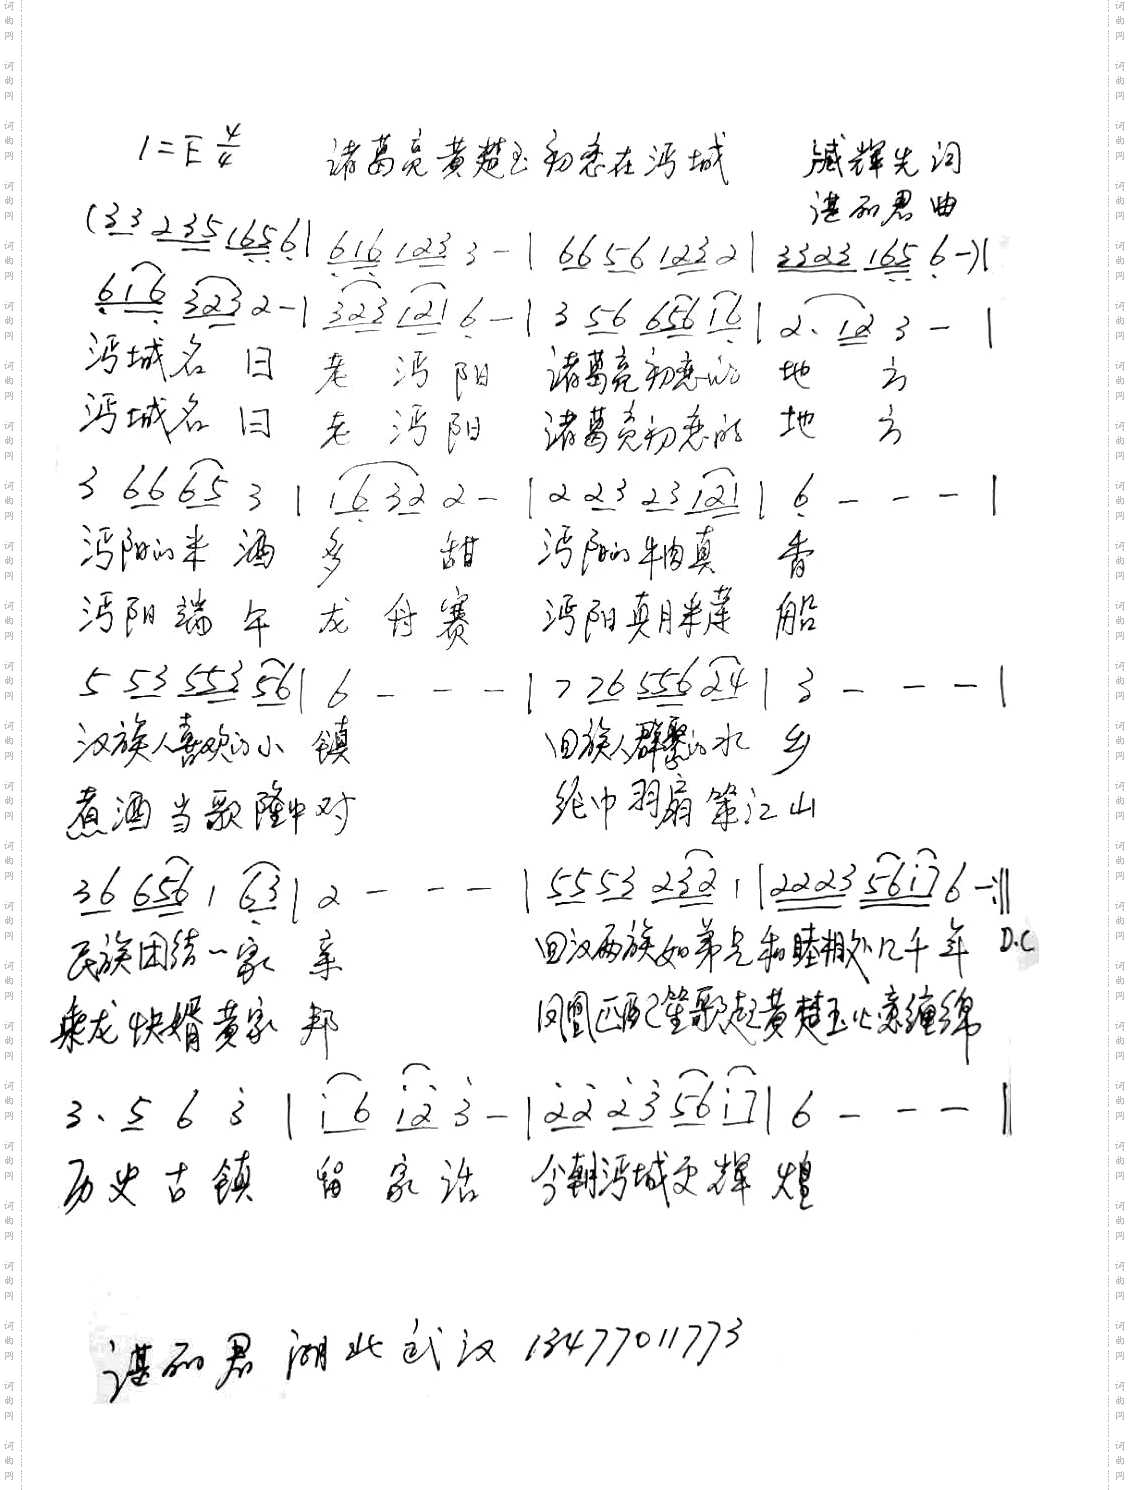 1=E 4/4 诸葛亮黄楚玉初恋在沔城 臧辉先词
谌丽君曲
(33 235 1656| 616 123 3 -| 66 56 123 2| 3323 165 6 -)|
616 323 2 -| 323 121 6 -| 3 56 656 16| 2· 12 3 - |
沔城名曰 老沔阳 诸葛亮初恋的 地方
沔城名曰 老沔阳 诸葛亮初恋的 地方
3 66 65 3 | 16 32 2 - | 2 23 23 121 | 6 - - - |
沔阳的米酒 多甜 沔阳的牛肉真 香
沔阳端午 龙舟赛 沔阳真月米莲 船
5 53 553 56| 6 - - - | 7 76 556 24 | 3 - - - |
汉族人喜欢的小 镇 回族人群聚的水 乡
煮酒当歌隆中对 纶巾羽扇筹江山
36 656 1 63 | 2 - - - | 55 53 232 1 | 2223 56i7 6 -:||
民族团结一家 亲 回汉两族如弟兄和睦相处几千年 D.C
乘龙快婿黄家 邦 凤凰匹配笙歌起黄楚玉恋缠绵
3· 5 6 3 | i6 i2 3 - | 22 23 56 i7 | 6 - - - ||
历史古镇 留家话 今朝沔城更辉煌
谌丽君 湖北武汉 13477011773
词曲网